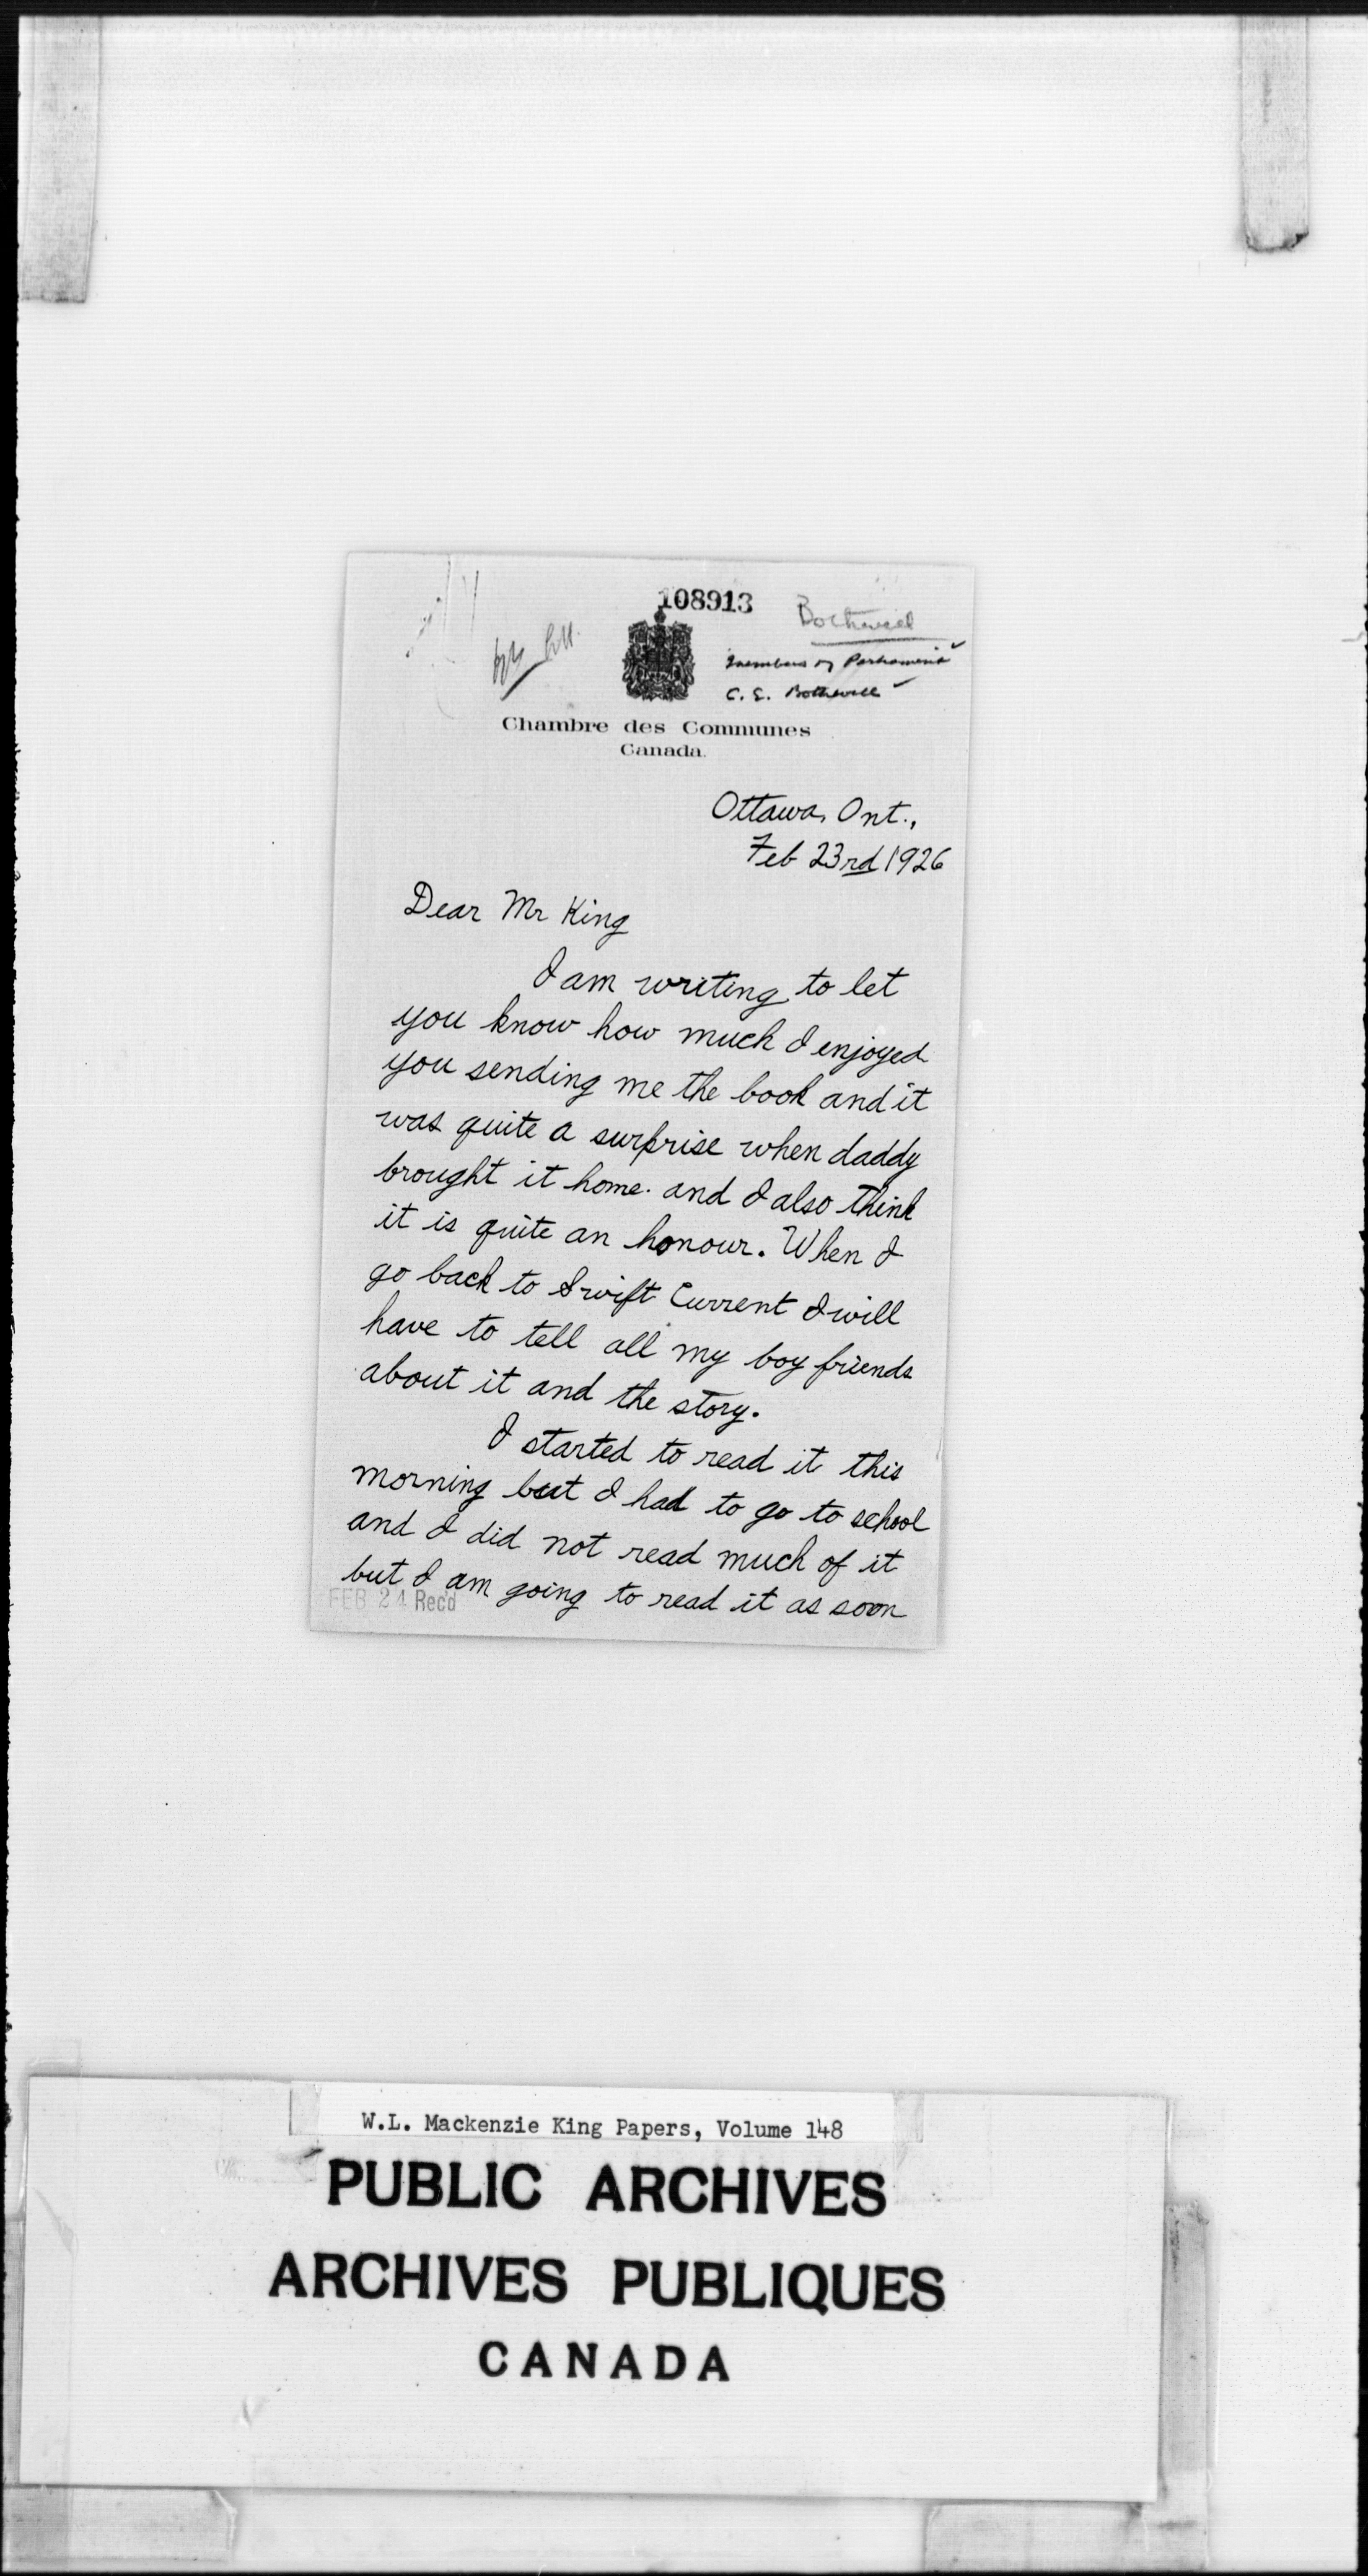 108913
Bothwell
Members of Parliament
C. E. Bothwell
Chambre des Communes
Canada.
Ottawa, Ont.,
Feb 23rd 1926
Dear Mr King
I am writing to let
you know how much I enjoyed
you sending me the book and it
was quite a surprise when daddy
brought it home. and I also think
it is quite an honour. When I
go back to Swift Current I will
have to tell all my boy friends
about it and the story.
I started to read it this
morning but I had to go to school
and I did not read much of it
but I am going to read it as soon
FEB 24 Rec'd
W.L. Mackenzie King Papers, Volume 148
PUBLIC ARCHIVES
ARCHIVES PUBLIQUES
CANADA